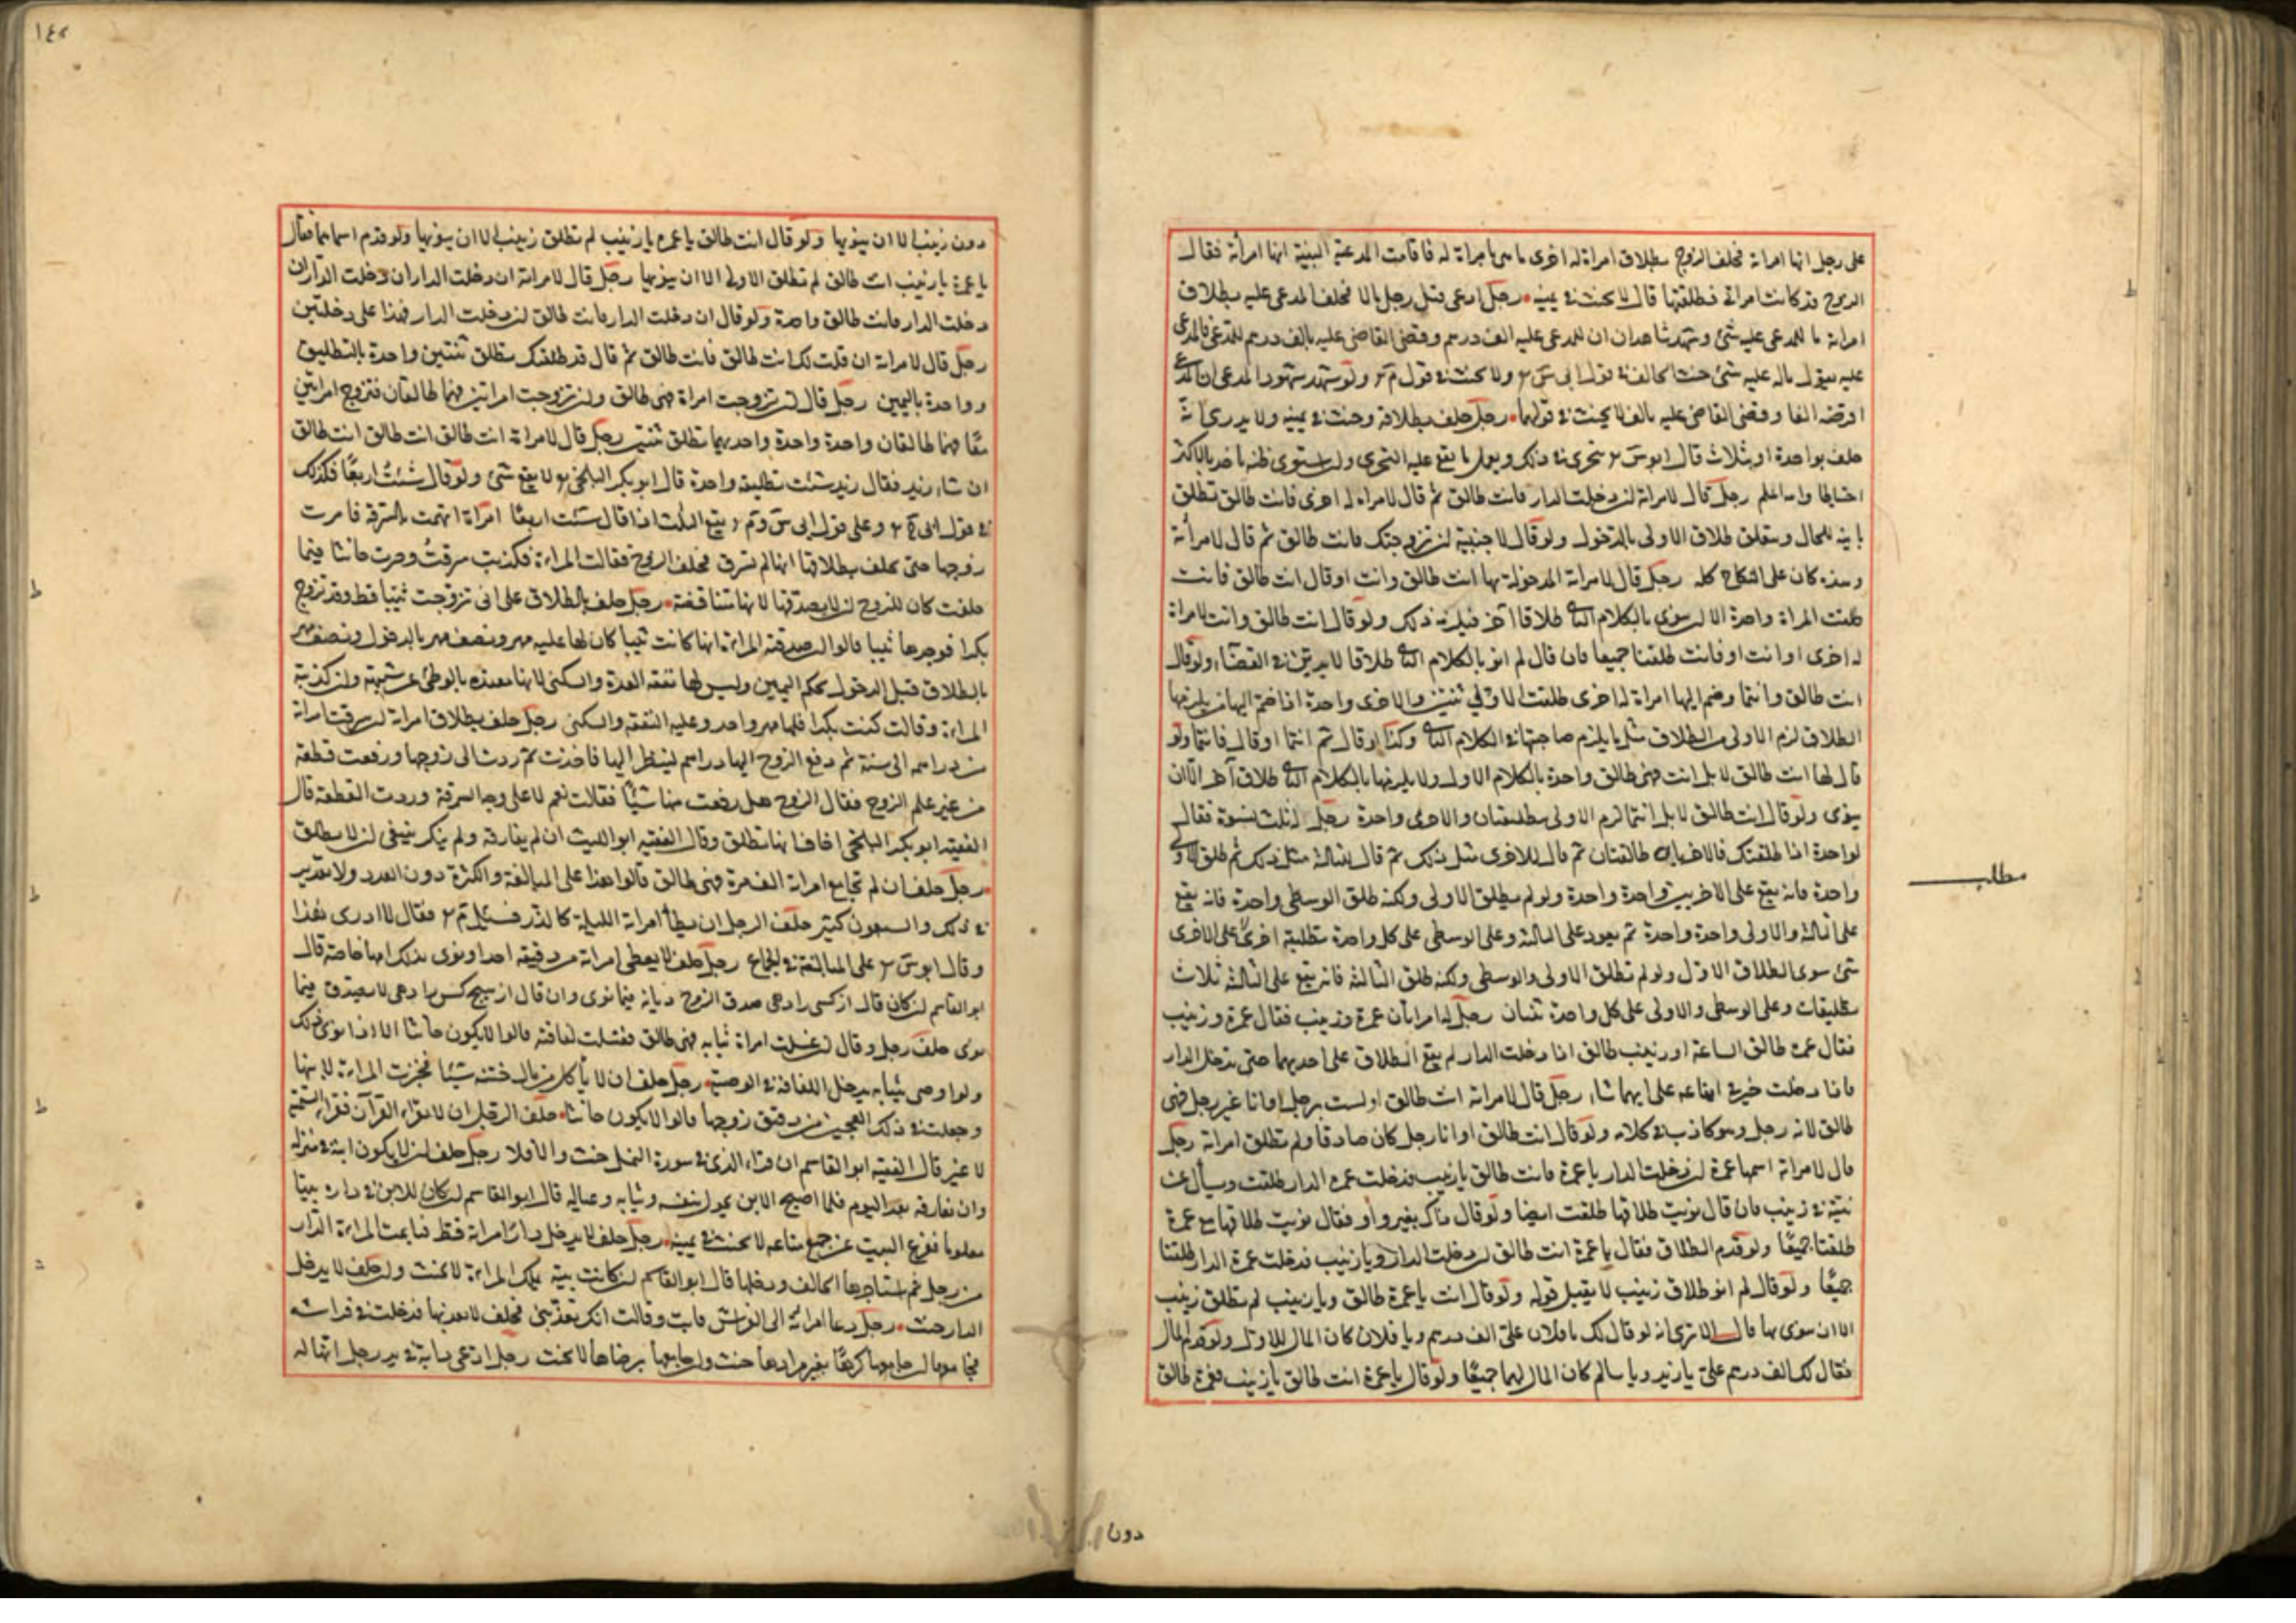 على رجل انها امراته فحلف الزوج بطلاق امراة له اخرى ما هى بامراة له فاقامت المدعية البينة انها امرأته فقال
الزوج قد كانت امراتى فطلقتها قال لا يحنث فى يمينه رجل ادعى قبل رجل مالا فحلف المدعى عليه بطلاق
امراته ما للمدعى عليه شئ وشهد شاهدان ان للمدعى عليه الف درهم وقضى القاضى عليه بالف درهم للمدعى فالمدعى
عليه يقول ماله عليه شئ حنث الحالف فى قول ابى س ولا يحنث فى قول م ولو شهد شهود المدعى ان المدعى
اقرضه الفا وقضى القاضى عليه بالف لا يحنث فى قولهما رجل حلف بطلاقه وحنث فى يمينه ولا يدرى انه
حلف بواحدة او بثلاث قال ابو س يتحرى فى ذلك ويعمل بما يقع عليه التحرى وان استوى ظنه ياخذ بالاكثر
احتياطا والله اعلم رجل قال لامراته ان دخلت الدار فانت طالق ثم قال لامراة له اخرى فانت طالق تطلق
للحال وتعلق طلاق الاولى بالدخول ولو قال لاجنبية ان تزوجتك فانت طالق ثم قال لامرأته
وهذه كان على النكاح كله رجل قال لامراته المدخولة بها انت طالق وانت او قال انت طالق فانت
طلقت المراة واحدة الا ان ينوى بالكلام الثانى طلاقا آخر فيلزمه ذلك ولو قال انت طالق وانت لامراة
له اخرى او انت او فانت طلقتا جميعا فان قال لم انو بالكلام الثانى طلاقا لا يدين فى القضاء ولو قال
انت طالق وانتما وضم اليها امراة له اخرى طلقت الاولى ثنتين والاخرى واحدة اذا ضم اليها من يلزمها
الطلاق لزم الاولى من الطلاق مثل ما يلزم صاحبتها فى الكلام الثانى وكذا لو قال ثم انتما او قال فانتما ولو
قال لها انت طالق لا بل انت فهى طالق واحدة بالكلام الاول ولا يلزمها بالكلام الثانى طلاق آخر الا ان
ينوى ولو قال انت طالق لا بل انتما لزم الاولى تطليقتان والاخرى واحدة رجل له ثلث نسوة فقال
لواحدة اذا طلقتك فالاخريان طالقتان ثم قال للاخرى مثل ذلك ثم قال للثالثة مثل ذلك ثم طلق الاولى
واحدة فانه يقع على الاخريين واحدة واحدة ولو لم يطلق الاولى ولكنه طلق الوسطى واحدة فانه يقع
على الثالثة والاولى واحدة واحدة ثم يعود على الثالثة وعلى الوسطى على كل واحدة تطليقة اخرى على الاخرى
شئ سوى الطلاق الاول ولو لم تطلق الاولى والوسطى ولكنه طلق الثالثة فانه يقع على الثالثة ثلاث
تطليقات وعلى الوسطى والاولى على كل واحدة ثنتان رجل له امراتان عمرة وزينب فقال عمرة وزينب
فقال عمرة طالق الساعة او زينب طالق اذا دخلت الدار لم يقع الطلاق على احديهما حتى تدخل الدار
فاذا دخلت خير فى ايقاعه على ايهما شاء رجل قال لامراته انت طالق او لست برجل او انا غير رجل فهى
طالق لانه رجل وهو كاذب فى كلامه ولو قال انت طالق او انا رجل كان صادقا ولم تطلق امراته رجل
قال لامراته اسمها عمرة ان دخلت الدار يا عمرة فانت طالق يا زينب فدخلت عمرة الدار طلقت ويسأل عن
نيته فى زينب فان قال نويت طلاقها طلقت ايضا ولو قال ذلك بغير واو فقال نويت طلاقها مع عمرة
طلقتا جميعا ولو قدم الطلاق فقال يا عمرة انت طالق ان دخلت الدار ويا زينب فدخلت عمرة الدار طلقتا
جميعا ولو قال لم انو طلاق زينب لا يقبل قوله ولو قال انت يا عمرة طالق ويا زينب لم تطلق زينب
الا ان ينوى بها قال الا ترى انه لو قال لك يا فلان على الف درهم ويا فلان كان المال للاول ولو قدم المال
فقال لك الف درهم على يا زيد ويا سالم كان المال لهما جميعا ولو قال يا عمرة انت طالق يا زينب فعمرة طالق
دون
مطلب
١٤٢
دون زينب الا ان ينويها ولو قال انت طالق يا عمرة يا زينب لم تطلق زينب الا ان ينويها ولو قدم اسماهما فقال
يا عمرة يا زينب انت طالق لم تطلق الاولى الا ان ينويها رجل قال لامراته ان دخلت الدار ان دخلت الدار ان
دخلت الدار فانت طالق واحدة ولو قال ان دخلت الدار فانت طالق ان دخلت الدار فهذا على دخلتين
رجل قال لامراته ان قلت لك انت طالق فانت طالق ثم قال قد طلقتك تطلق ثنتين واحدة بالتطليق
وواحدة باليمين رجل قال ان تزوجت امراة فهى طالق وان تزوجت امراتين فهما طالقان فتزوج امراتين
معا فهما طالقان واحدة واحدة واحديهما تطلق ثنتين رجل قال لامراته انت طالق انت طالق انت طالق
ان شاء زيد فقال زيد شئت تطليقة واحدة قال ابو بكر البلخى لا يقع شئ ولو قال شئت اربعا فكذلك
فى قول ابى ح وعلى قول ابى س و م يقع الثلث اذا قال شئت اربعا امراة اتهمت بالسرقة فامرت
زوجها حتى يحلف بطلاقها انها لم تسرق فحلف الزوج فقالت المراة فكذبت سرقت وصرت حانثا فيما
حلفت كان للزوج ان لا يصدقها لانها متناقضة رجل حلف بالطلاق على انى تزوجت ثيبا قط وقد تزوج
بكرا فوجدها ثيبا قالوا ان صدقته المراة انها كانت ثيبا كان لها عليه مهر ونصف مهر بالدخول ونصف مهر
بالطلاق قبل الدخول بحكم اليمين وليس لها نفقة العدة والسكنى لانها معتدة بالوطئ عن شبهة وان كذبته
المراة وقالت كنت بكرا فلها مهر واحد وعليه النفقة والسكنى رجل حلف بطلاق امراته ان سرقت امراته
من دراهمه الى سنة ثم دفع الزوج اليها دراهم لينظر اليها فاخذت ثم ردت الى زوجها ورفعت قطعة
من غير علم الزوج فقال الزوج هل رفعت منها شيئا فقالت نعم لا على وجه السرقة وردت القطعة قال
الفقيه ابو بكر البلخى اخاف انها تطلق وقال الفقيه ابو الليث ان لم يفارقه ولم ينكر ينبغى ان لا تطلق
رجل حلف ان لم تجامع امراته الف مرة فهى طالق قالوا هذا على المبالغة والكثرة دون العدد ولا تقدير
فى ذلك والسبعون كثير حلف الرجل ان يطأ امراته الليلة كالدر فسئل م فقال لا ادرى هذا
وقال ابو س على المبالغة فى الجماع رجل حلف لا يعطى امراته من دقيقه احدا ونوى بذلك امها خاصة قال
ابو القاسم ان كان قال از كسى را دهى صدق الزوج ديانة فيما نوى وان قال از هيچ كس را دهى لا يصدق فيما
نوى حلف رجل وقال ان غسلت امراته ثيابه فهى طالق فغسلت لفافته قالوا لا يكون حانثا الا اذا نوى ذلك
ولو اوصى بثيابه يدخل اللفافة فى الوصية رجل حلف ان لا يأكل من مال ختنه شيئا فخبزت المراة لابنها
وجعلت فى ذلك العجين من دقيق زوجها قالوا لا يكون حانثا حلف الرجل ان لا يقراء القرآن فقراء التسمية
لا غير قال الفقيه ابو القاسم ان قراء الذى فى سورة النمل حنث والا فلا رجل حلف ان لا يكون ابنه فى منزله
وان يفارقه بعد اليوم فلما اصبح الابن تحول بنفسه وثيابه وعياله قال ابو القاسم ان كان للابن فى داره بيتا
معلوما ففرغ البيت عن جميع متاعه لا يحنث فى يمينه رجل حلف لا يدخل دار امراته قط فباعت المراة الدار
من رجل ثم استاجرها الحالف ودخلها قال ابو القاسم ان كانت يمينه بملك المراة لا يحنث وان حلف لا يدخل
الدار حنث رجل دعا امراته الى الفراش فابت وقالت انك تعذبنى فحلف لا يعذبها فدخلت فى فراشه
فجامعها ان جامعها كرها بغير مرادها حنث وان جامعها برضاها لا يحنث رجل ادعى دابة فى يد رجل انها له